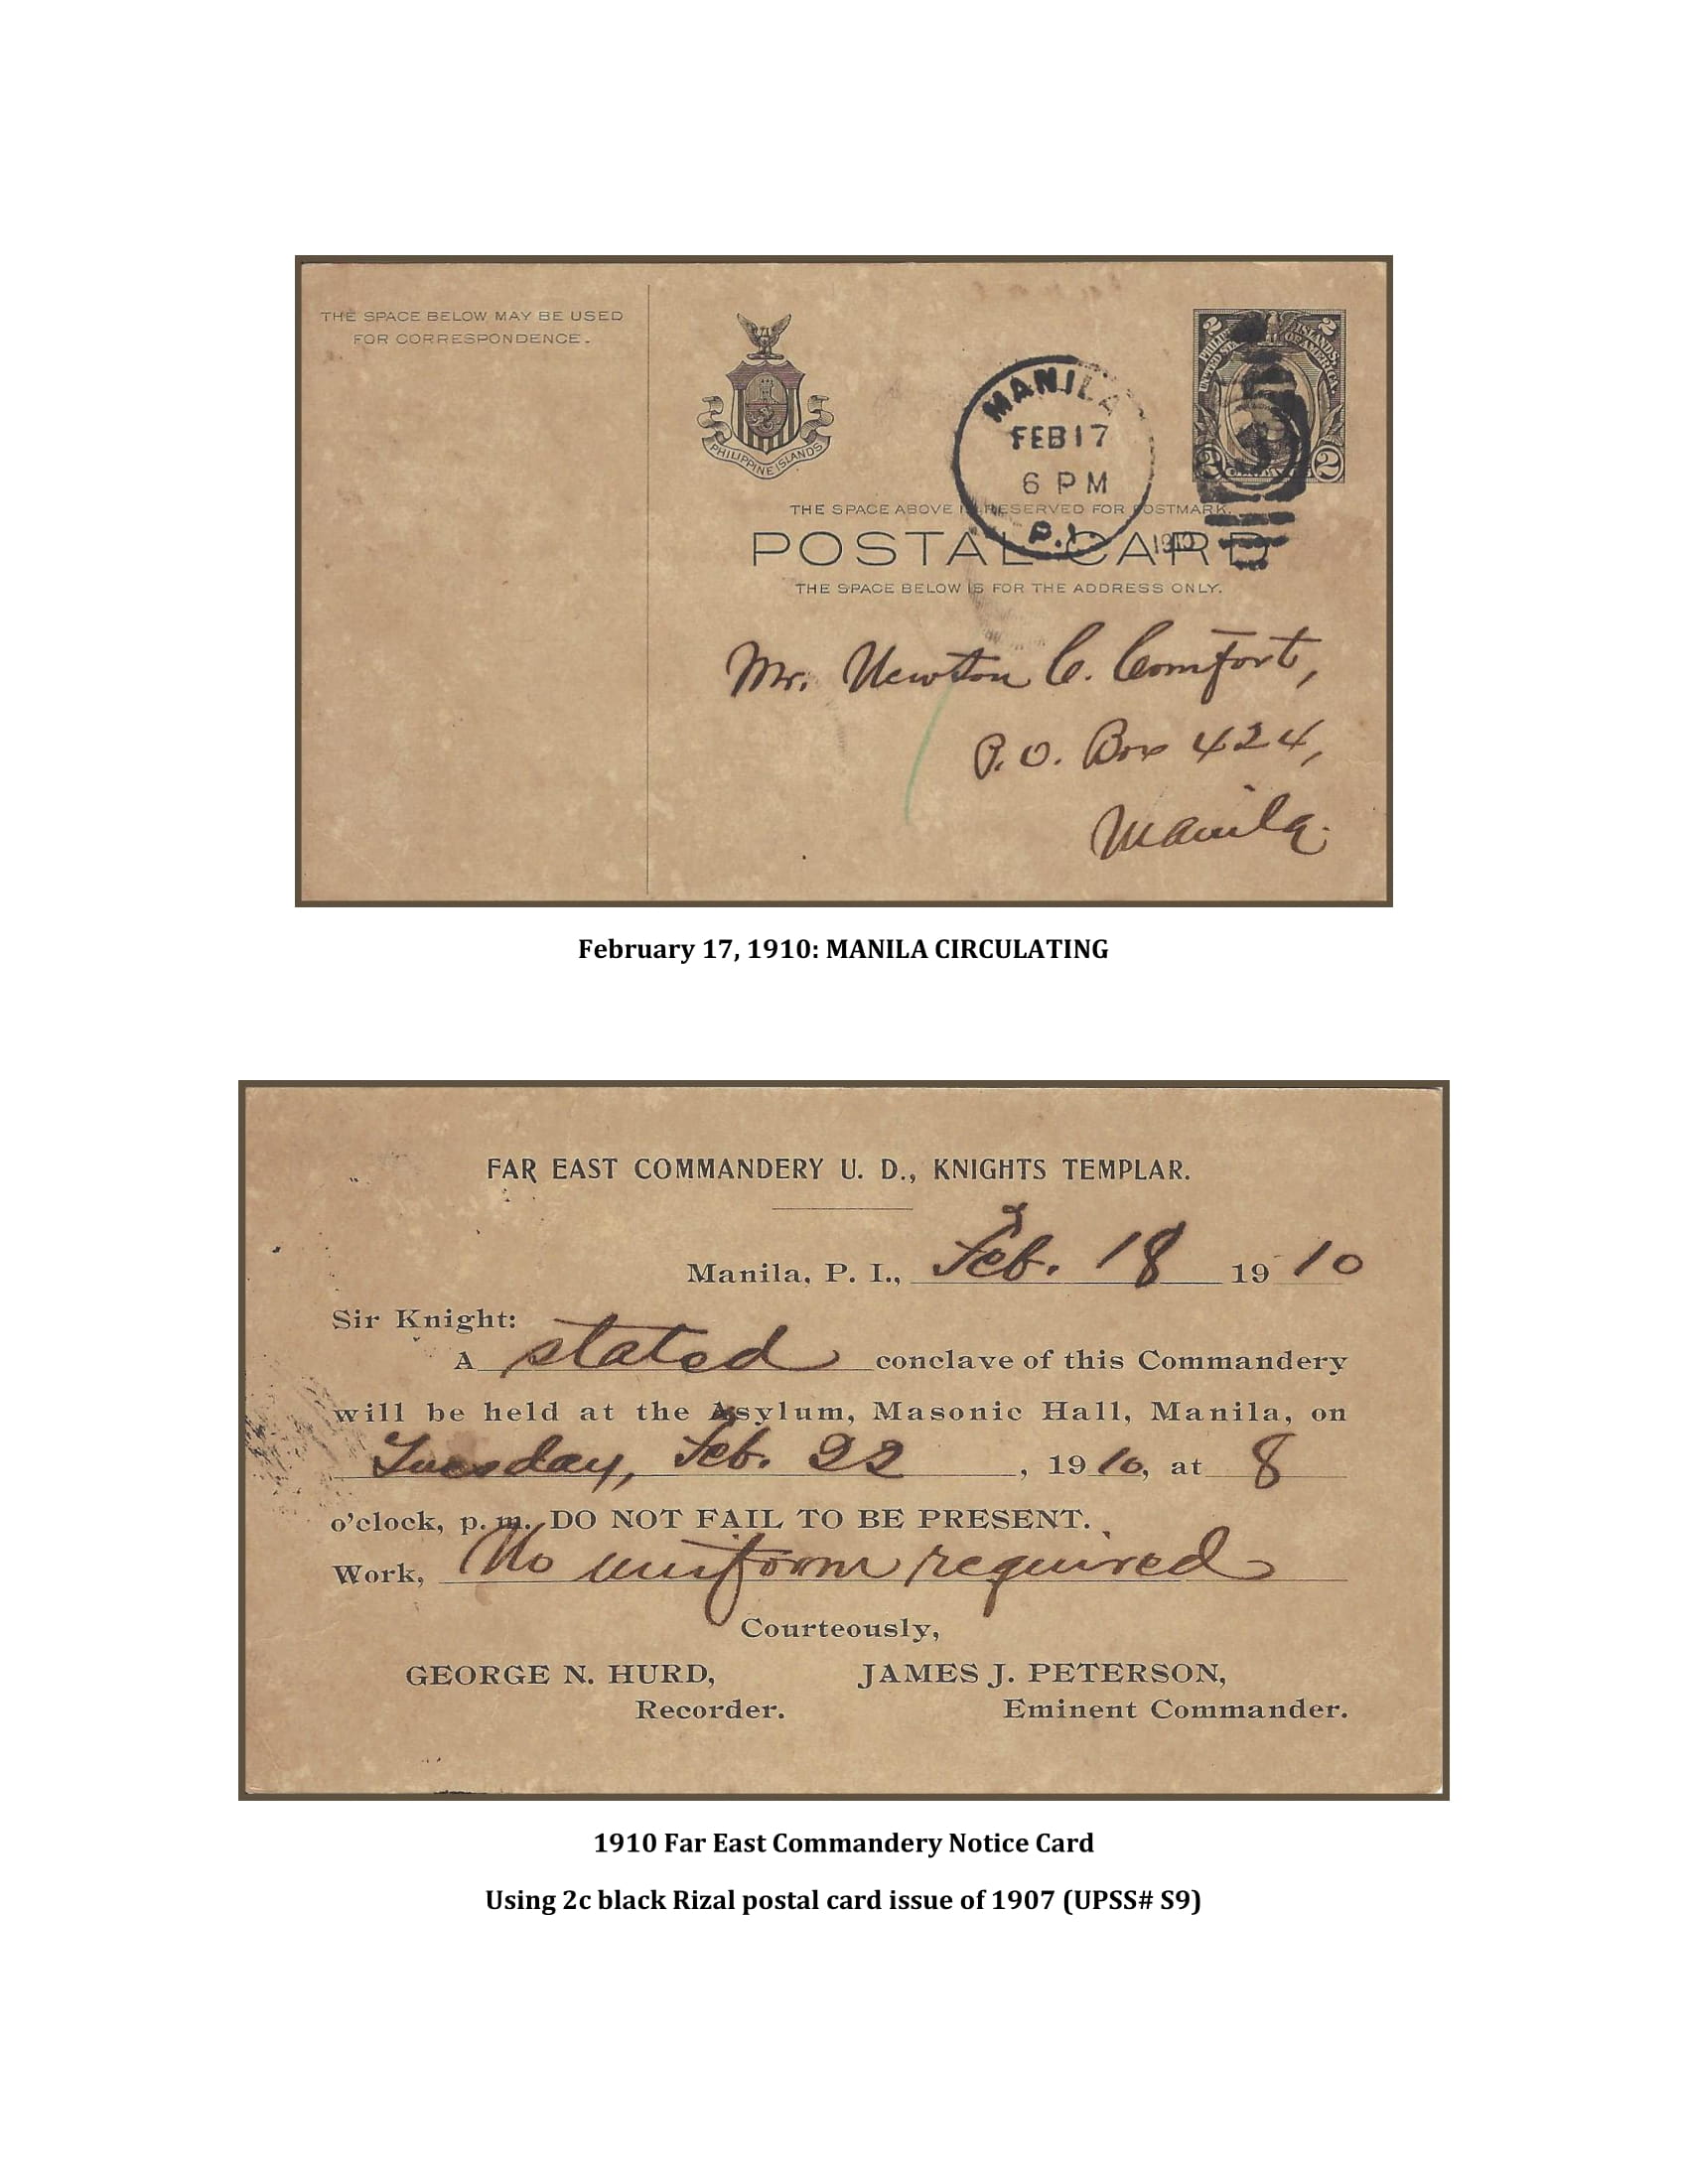 THE SPACE BELOW MAY BE USED
FOR CORRESPONDENCE.
PHILIPPINE ISLANDS
2 2
PHILIPPINE ISLANDS.
UNITED STATES OF AMERICA.
2 2
MANILA
FEB 17
6 PM
P.I.
1910
THE SPACE ABOVE IS RESERVED FOR POSTMARK.
POSTAL CARD
THE SPACE BELOW IS FOR THE ADDRESS ONLY.
Mr. Newton C. Comfort,
P.O. Box 424,
Manila.
February 17, 1910: MANILA CIRCULATING
FAR EAST COMMANDERY U. D., KNIGHTS TEMPLAR.
Manila, P. I., Feb. 18 1910
Sir Knight:
A stated conclave of this Commandery
will be held at the Asylum, Masonic Hall, Manila, on
Tuesday, Feb. 22, 1910, at 8
o'clock, p. m. DO NOT FAIL TO BE PRESENT.
Work, No uniform required
Courteously,
GEORGE N. HURD, JAMES J. PETERSON,
Recorder. Eminent Commander.
1910 Far East Commandery Notice Card
Using 2c black Rizal postal card issue of 1907 (UPSS# S9)